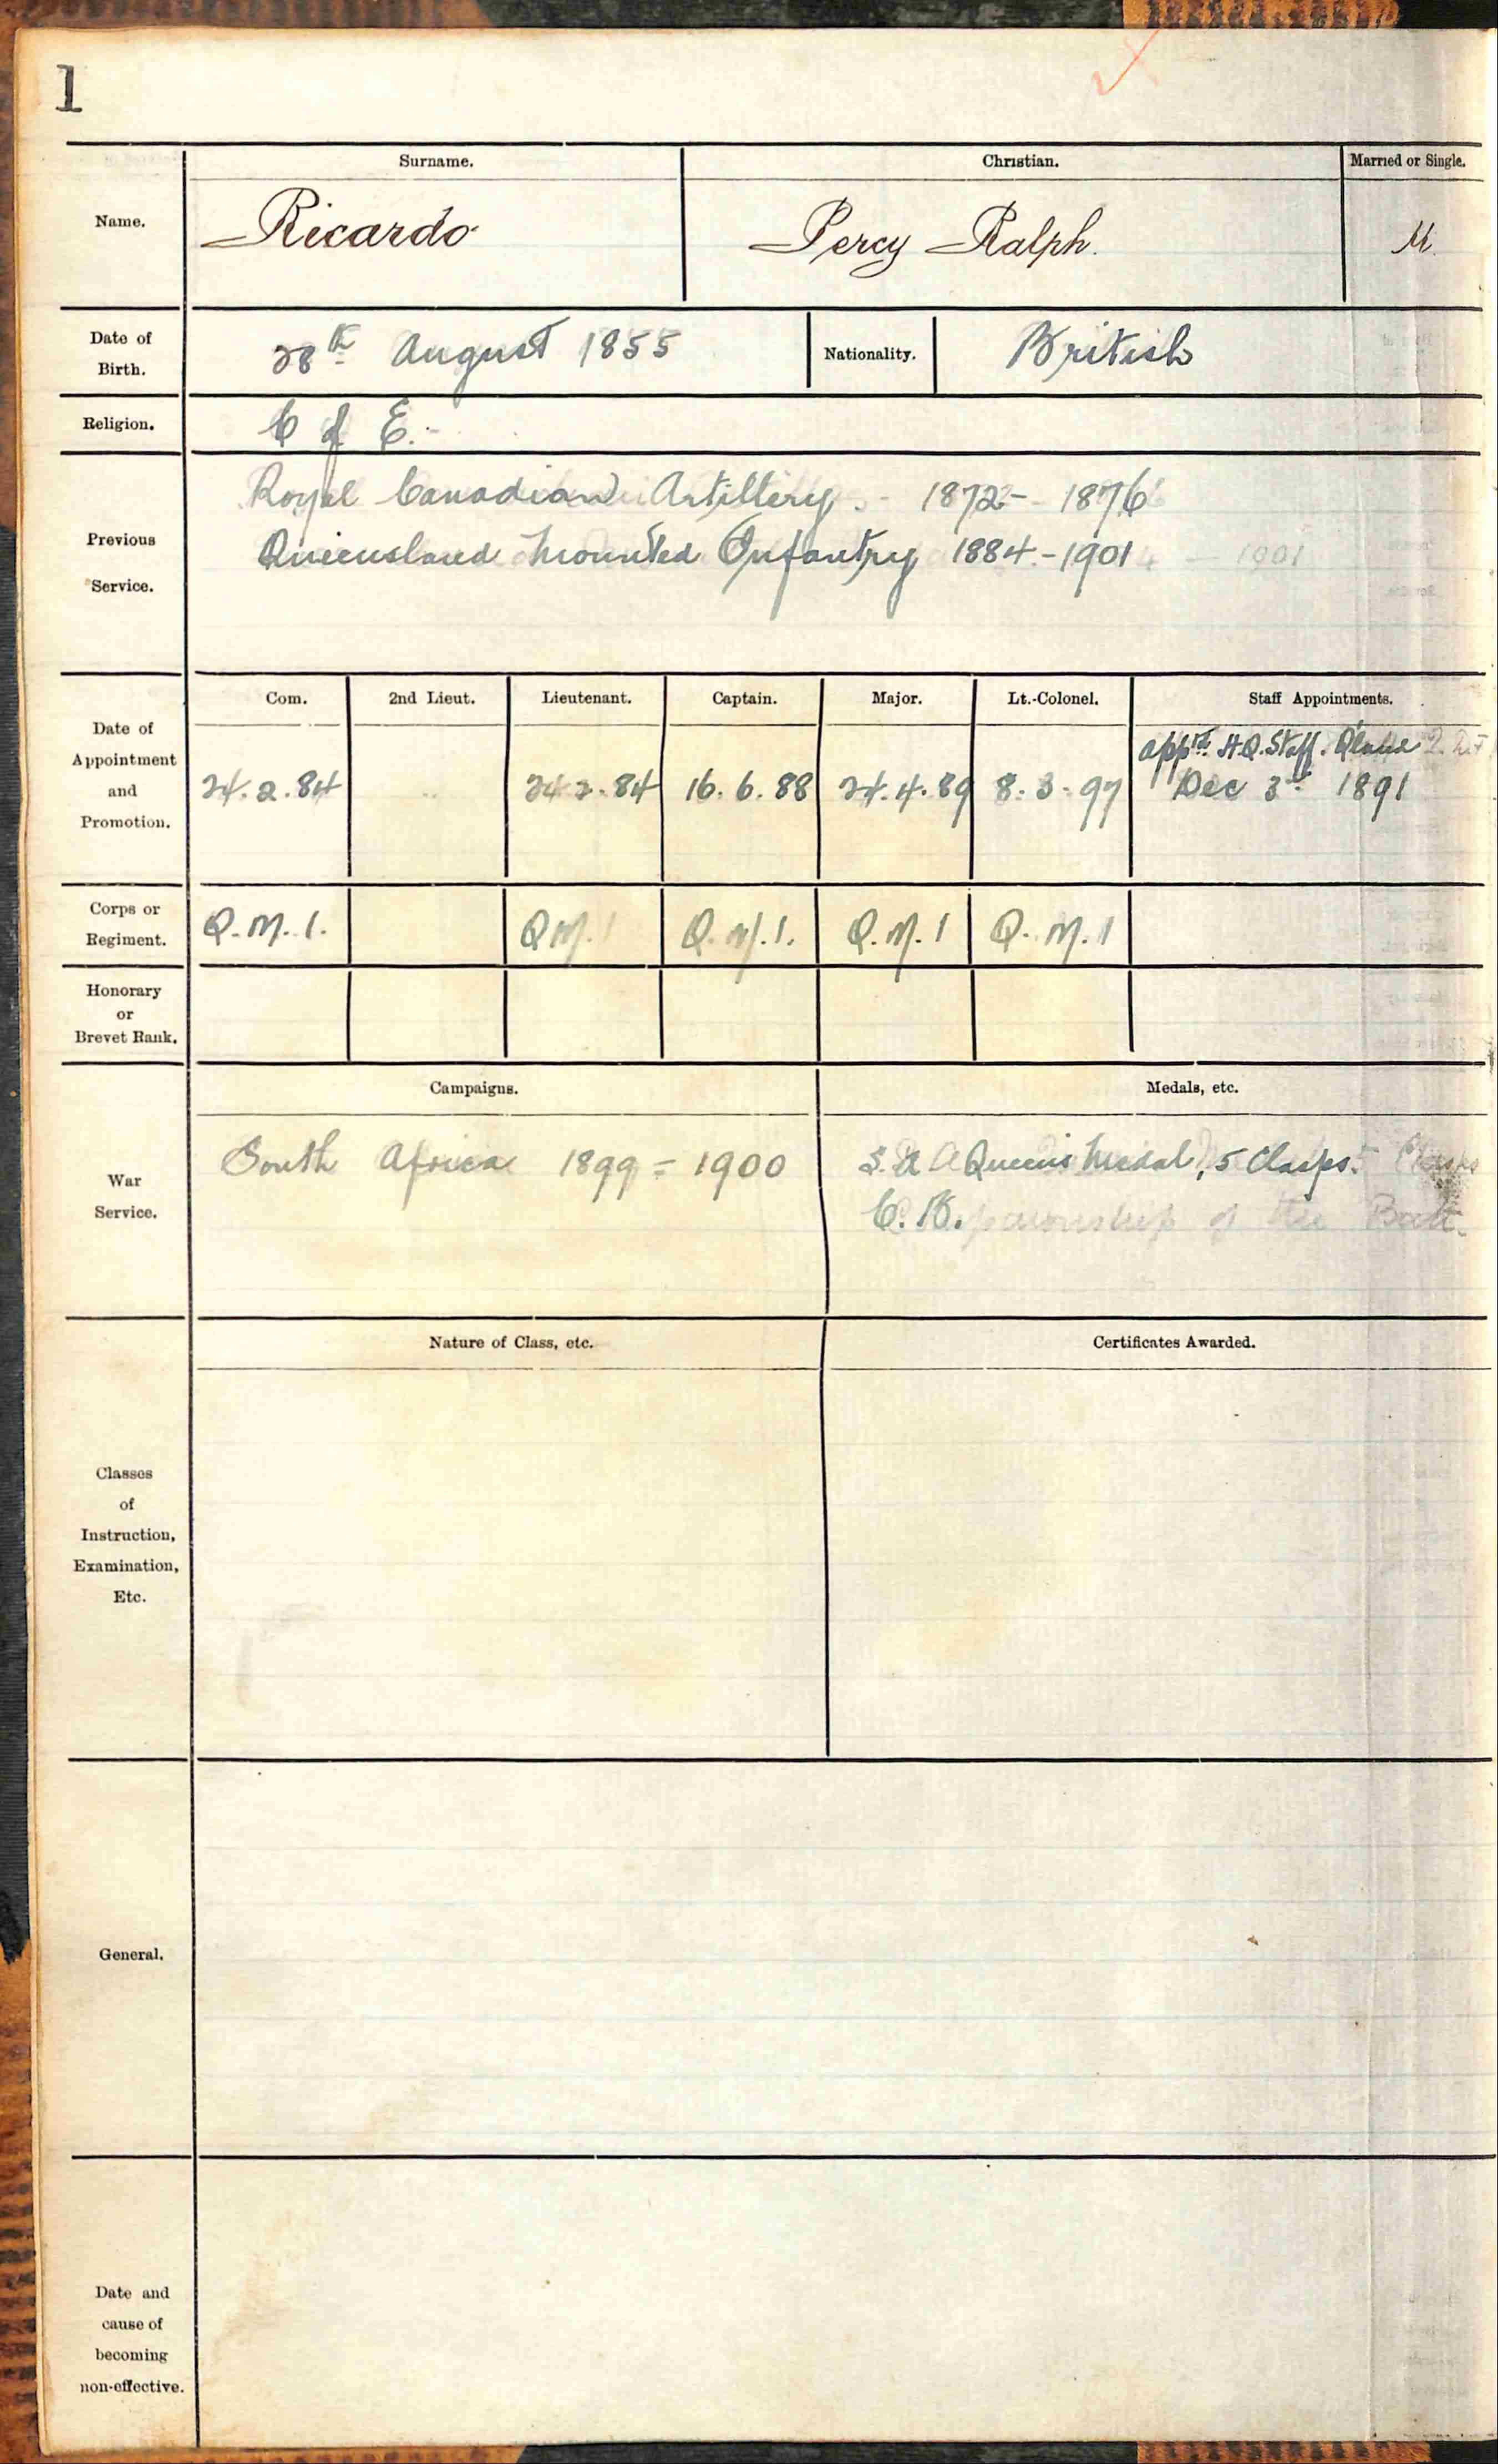 1
Surname. Christian. Married or Single.
Name. Ricardo Percy Ralph. M.
Date of Birth. 28th August 1855 Nationality. British
Religion. C of E.-
Previous Service.
Royal Canadian Artillery. - 1872 - 1876
Queensland Mounted Infantry 1884 - 1901
Date of Appointment and Promotion.
Com. 2nd Lieut. Lieutenant. Captain. Major. Lt.-Colonel. Staff Appointments.
apptd. H.Q. Staff. Qland
24.2.84 24.2.84 16.6.88 24.4.89 8.3.97 Dec 3rd 1891
Corps or Regiment. Q.M.I. Q.M.I Q.M.I. Q.M.I Q.M.I
Honorary or Brevet Rank.
War Service.
Campaigns. Medals, etc.
South Africa 1899 = 1900 S.A Queens Medal, 5 Clasps.
C.B. Companionship of the Bath.
Nature of Class, etc. Certificates Awarded.
Classes
of
Instruction,
Examination,
Etc.
General.
Date and
cause of
becoming
non-effective.